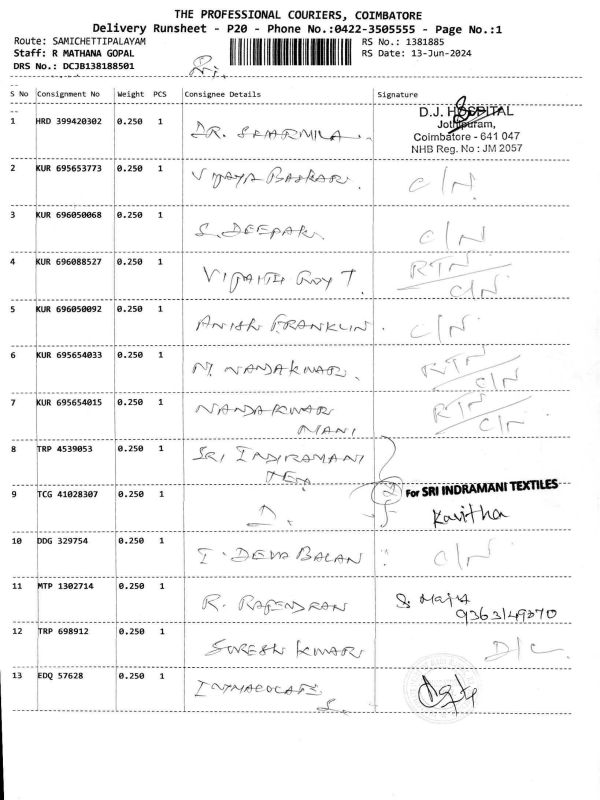 THE PROFESSIONAL COURIERS, COIMBATORE
Delivery Runsheet - P20 - Phone No.:0422-3505555 - Page No.:1
Route: SAMICHETTIPALAYAM
RS No.: 1381885
Staff: R MATHANA GOPAL
RS Date: 13-Jun-2024
DRS No.: DCJB138188501
S No Consignment No Weight PCS Consignee Details Signature
1 HRD 399420302 0.250 1 DR. SHARMILA
D.J. HOSPITAL
Jothipuram,
Coimbatore - 641 047
NHB Reg. No : JM 2057
2 KUR 695653773 0.250 1 VIJAYA BASKAR. C/N
3 KUR 696050068 0.250 1 S. DEEPAK C/N
4 KUR 696088527 0.250 1 T. RTN
C/N
5 KUR 696050092 0.250 1 ANISH FRANKLIN. C/N
6 KUR 695654033 0.250 1 N. NANDAKUMAR. RTN
C/N
7 KUR 695654015 0.250 1 NANDAKUMAR RTN
MANI C/N
8 TRP 4539053 0.250 1 SRI INDIRAMANI
TEX
9 TCG 41028307 0.250 1 D. 2 For SRI INDRAMANI TEXTILES
Kavitha
10 DDG 329754 0.250 1 T. DEVA BALAN C/N
11 MTP 1302714 0.250 1 R. RAJENDRAN
12 TRP 698912 0.250 1 SURESH KUMAR D/C
13 EDQ 57628 0.250 1